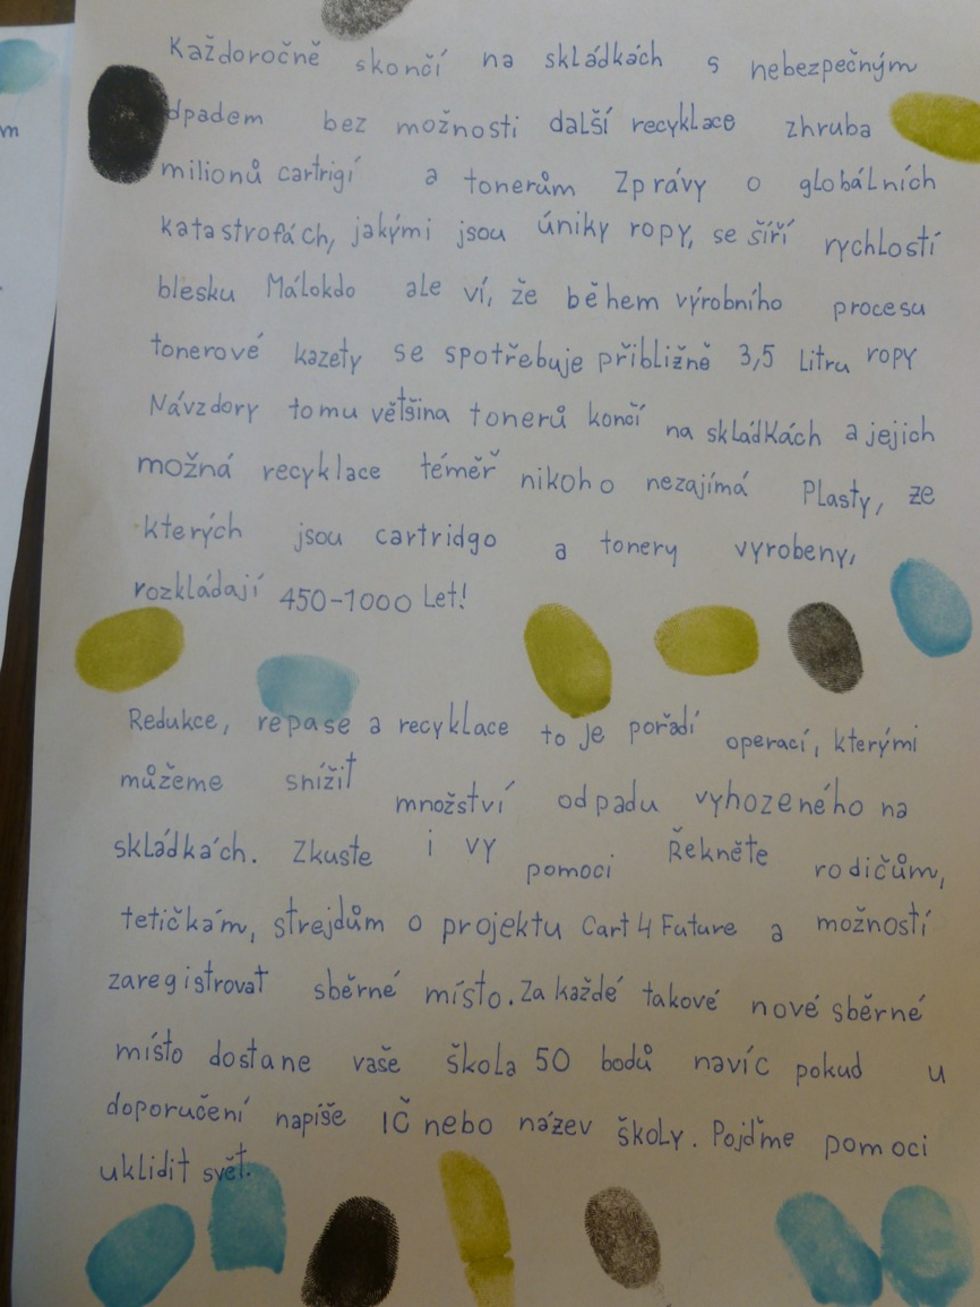 Každoročně skončí na skládkách s nebezpečným
dpadem bez možnosti další recyklace zhruba
milionů cartrigí a tonerům Zprávy o globálních
katastrofách, jakými jsou úniky ropy, se šíří rychlostí
blesku Málokdo ale ví, že během výrobního procesu
tonerové kazety se spotřebuje přibližně 3,5 Litru ropy
Návzdory tomu většina tonerů končí na skládkách a jejich
možná recyklace téměř nikoho nezajímá Plasty, ze
kterých jsou cartridgo a tonery vyrobeny,
rozkládají 450-1000 Let!
Redukce, repase a recyklace to je pořadí operací, kterými
můžeme snížit množství odpadu vyhozeného na
skládkách. Zkuste i vy pomoci Řekněte rodičům,
tetičkám, strejdům o projektu Cart 4 Future a možností
zaregistrovat sběrné místo. Za každé takové nové sběrné
místo dostane vaše škola 50 bodů navíc pokud u
doporučení napíše IČ nebo název školy. Pojďme pomoci
uklidit svět.
m